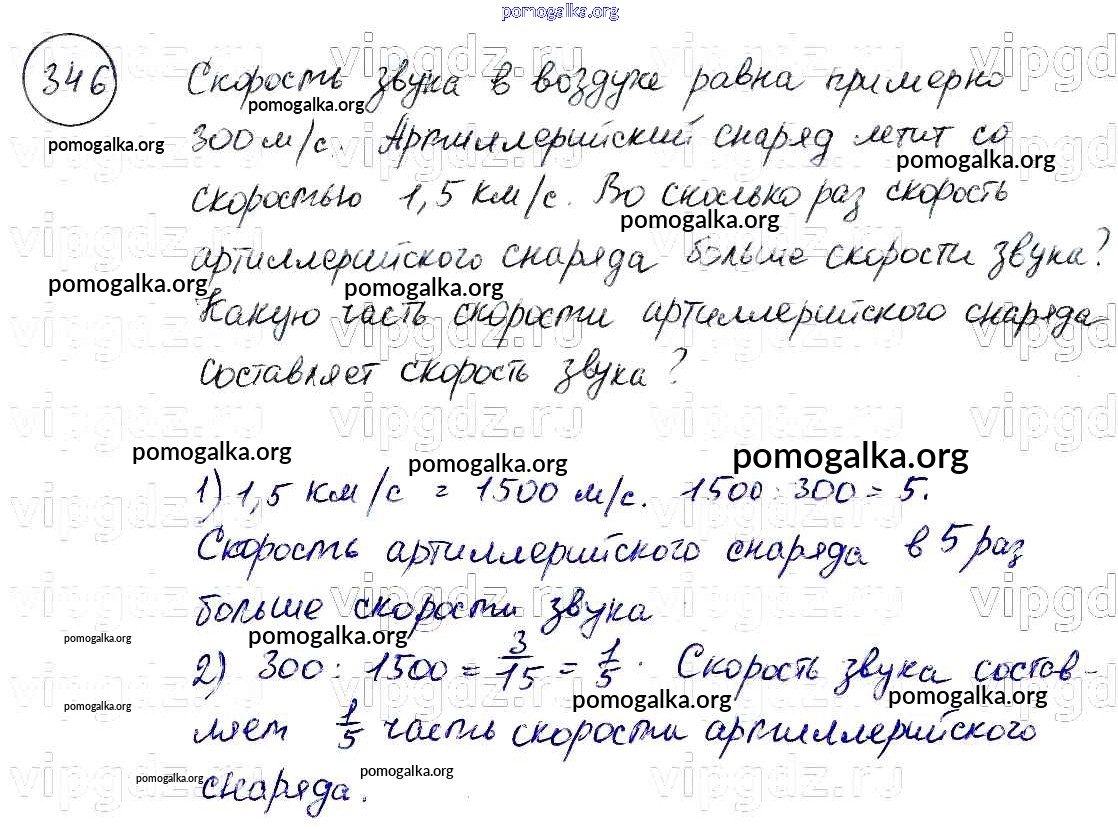 pomogalka.org
346 Скорость звука в воздухе равна примерно
300 м/с. Артиллерийский снаряд летит со
скоростью 1,5 км/с. Во сколько раз скорость
артиллерийского снаряда больше скорости звука?
Какую часть скорости артиллерийского снаряда
составляет скорость звука?
1) 1,5 км/с = 1500 м/с. 1500 : 300 = 5.
Скорость артиллерийского снаряда в 5 раз
больше скорости звука
2) 300 : 1500 = 3/15 = 1/5. Скорость звука состав-
ляет 1/5 часть скорости артиллерийского
снаряда.